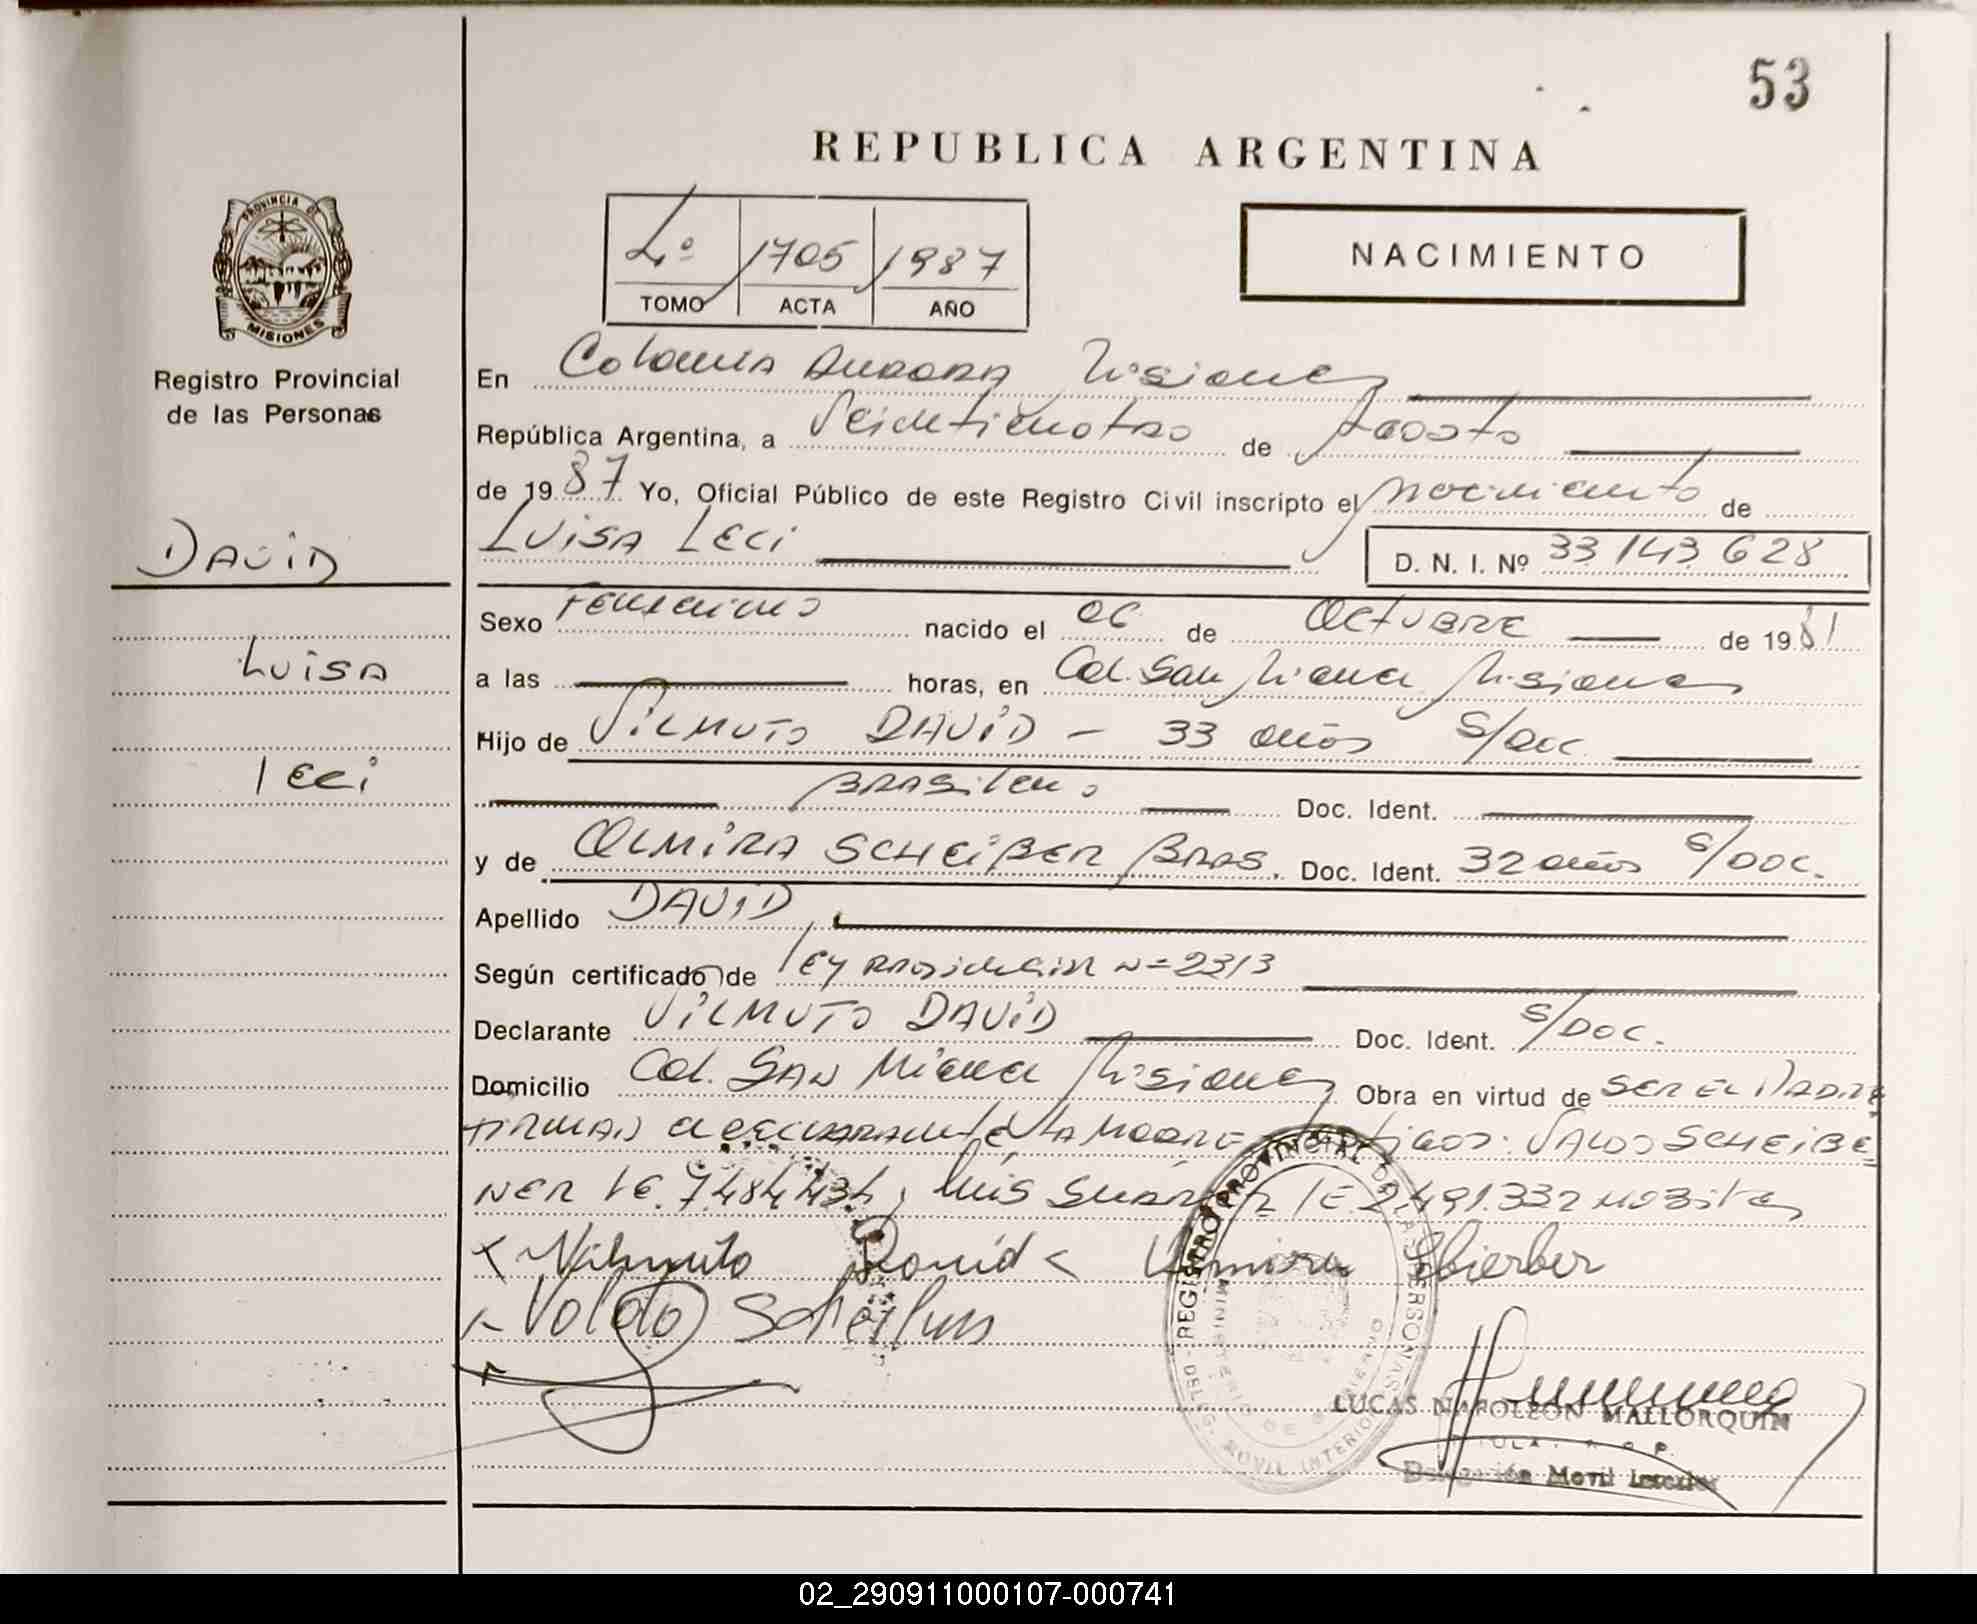 53
REPUBLICA ARGENTINA
4º 1705 1987
TOMO ACTA AÑO
NACIMIENTO
PROVINCIA DE MISIONES
Registro Provincial
de las Personas
DAVID
LUISA
LECI
En Colonia Aurora Misiones
República Argentina, a Veintienotro de Agosto
de 1987 Yo, Oficial Público de este Registro Civil inscripto el nacimiento de
LUISA LECI D. N. I. Nº 33143628
Sexo Femenino nacido el 06 de OCTUBRE de 1981
a las horas, en Col. San Miguel Misiones
Hijo de VILMUTO DAVID - 33 años S/DOC
BRASILENO Doc. Ident.
y de OLMIRA SCHEIBER BRAS. Doc. Ident. 32 años S/DOC.
Apellido DAVID
Según certificado de LEY PROVINCIAL Nº 2313
Declarante VILMUTO DAVID Doc. Ident. S/DOC.
Domicilio Col. SAN Miguel Misiones Obra en virtud de SER EL PADRE
FIRMAN el DECLARANTE LA MADRE testigos: VALDO SCHEIBE=
NER LE. 7.484.434, Luis SUAREZ LE 2.491.332
x Vilmuto David x Scierber
x Valdo
REGISTRO PROVINCIAL DE LAS PERSONAS
MINISTERIO DE GOBIERNO
DELEG. MOVIL INTERIOR
LUCAS NAPOLEON MALLORQUIN
TITULAR R.O.P.
Delegación Movil Interior
02_290911000107-000741